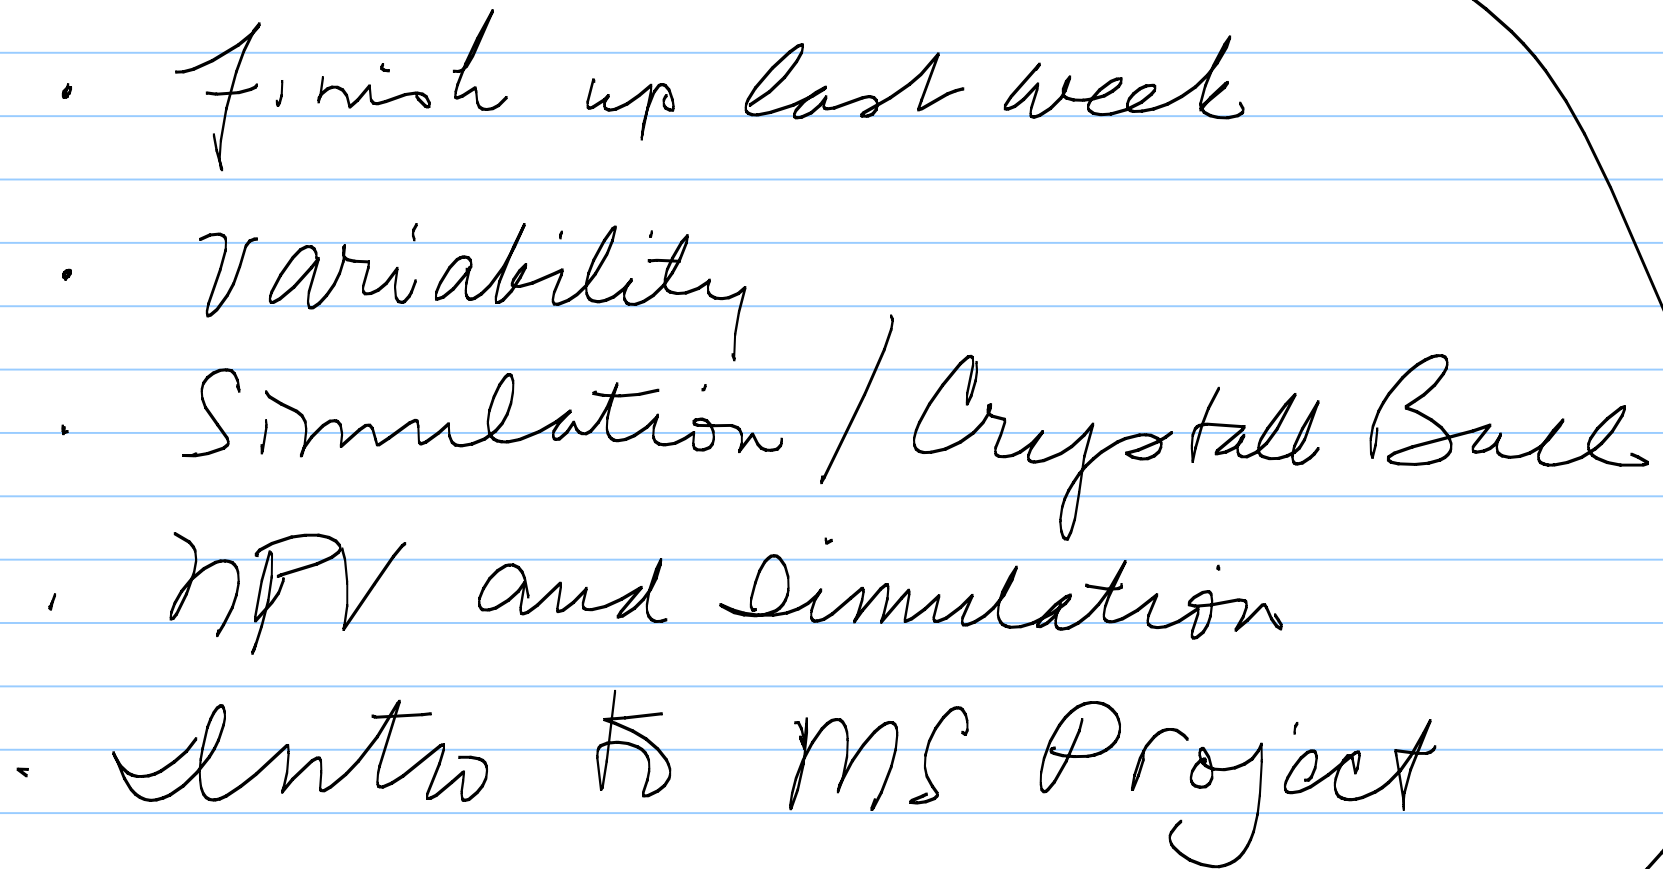 · Finish up last week
· Variability
· Simulation / Crystall Ball
· NPV and Simulation
· Intro to MS Project